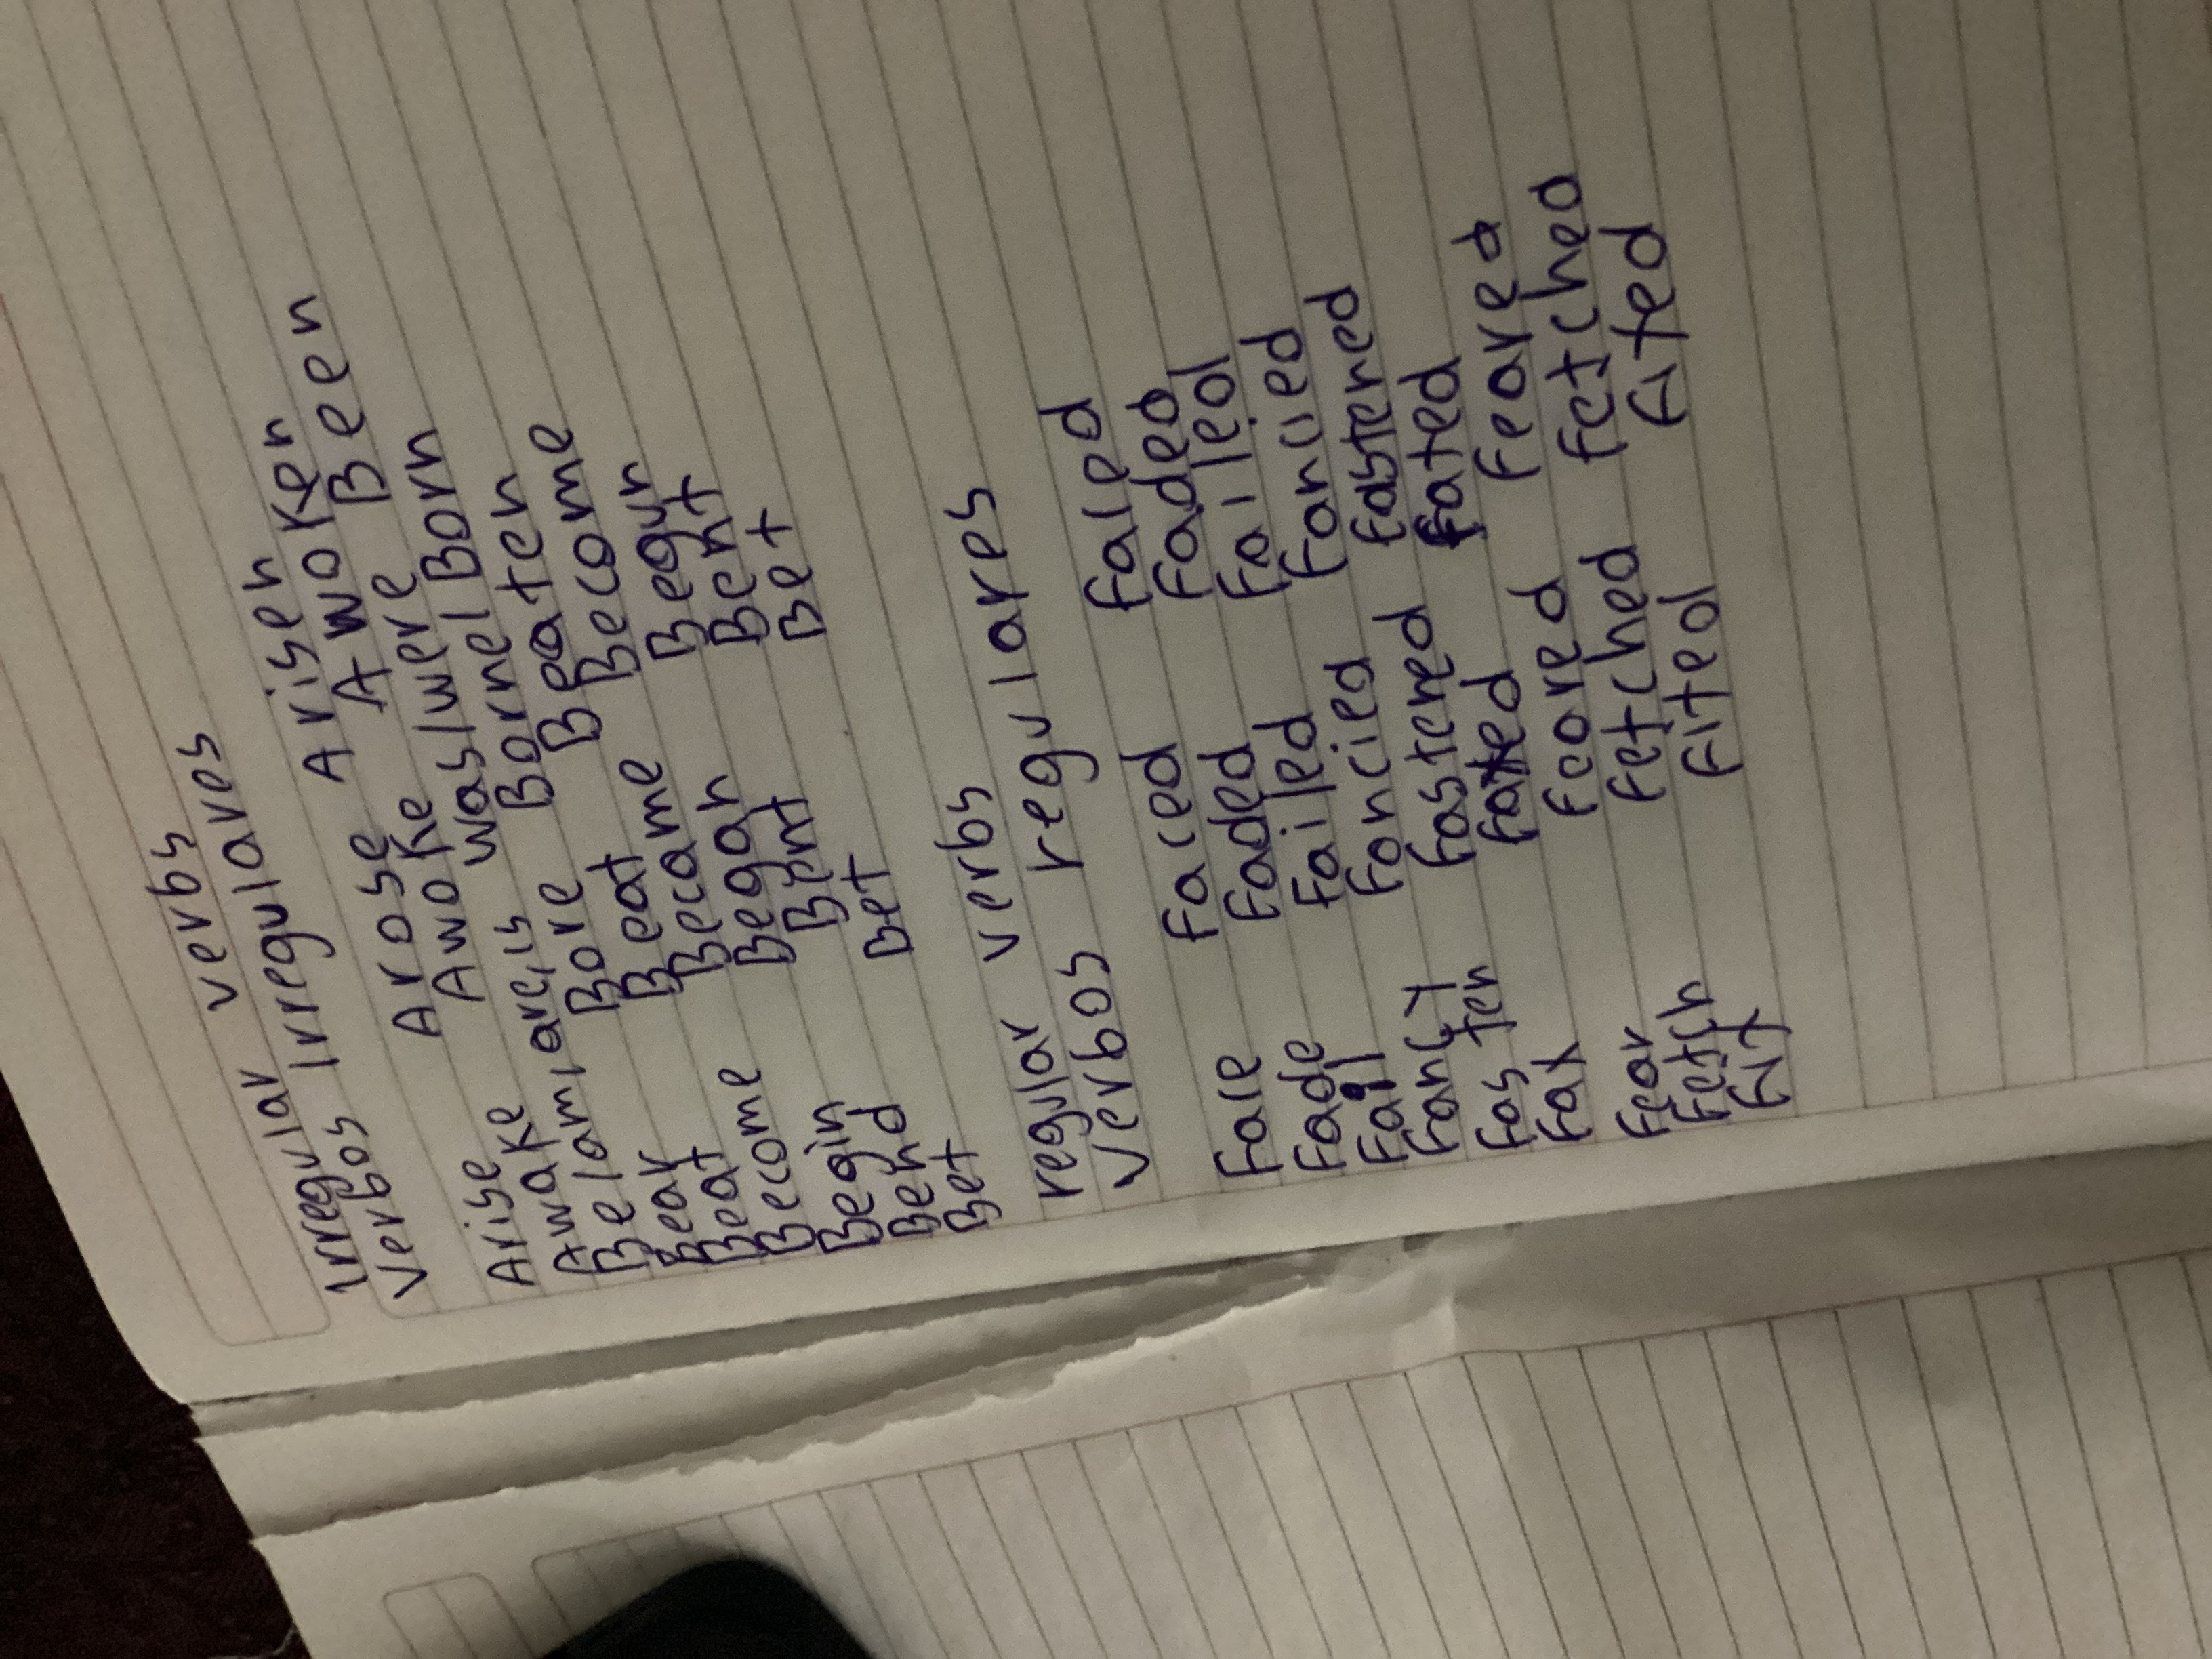 Irregular verbs
Verbos irregulares
Arise Arose Arisen
Awake Awoke Awoken
Be/am/are/is was/were Been
Bear Bore Borne/Born
Beat Beat Beaten
Become Became Become
Begin Began Begun
Bend Bent Bent
Bet Bet Bet
regular verbs
Verbos regulares
Face Faced Faced
Fade Faded Faded
Fail Failed Failed
Fancy Fancied Fancied
Fasten Fastened Fastened
Fax Faxed Faxed
Fear Feared Feared
Fetch Fetched Fetched
Fit Fited Fited